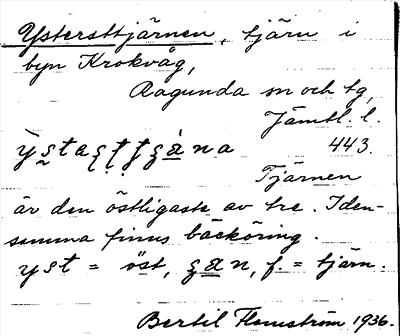 Ystersttjärnen, tjärn i
byn Krokvåg,
Ragunda sn och tg,
Jämtl. l.
443.
Tjärnen
är den östligaste av tre. Iden-
samma finns bäcköring.
yst = öst, f. = tjärn.
Bertil Flemström 1936.